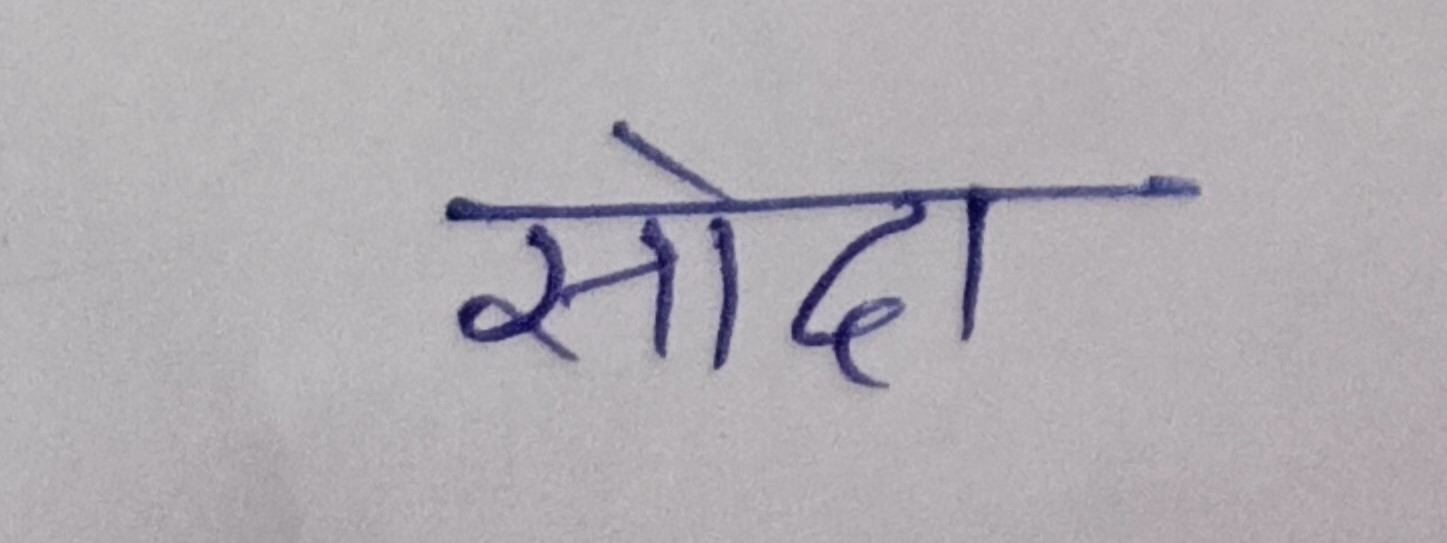 सोदा